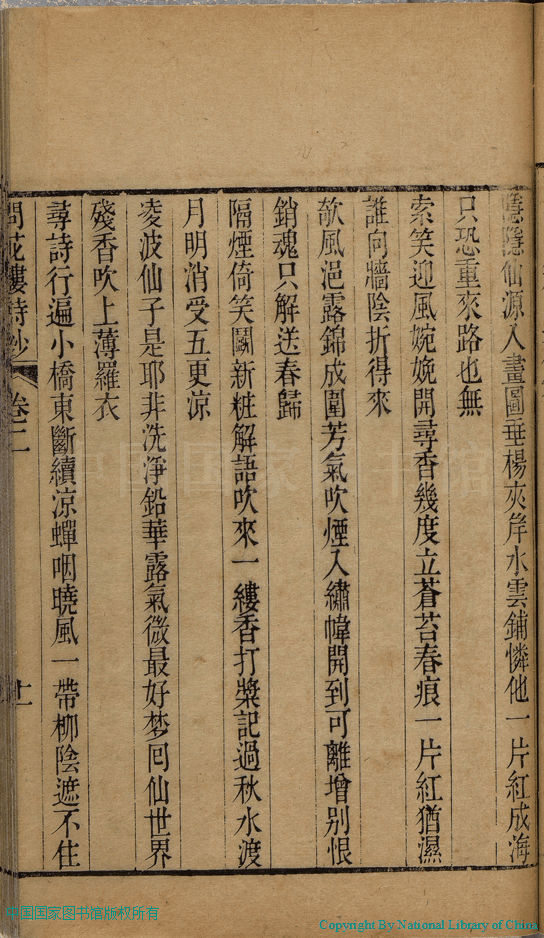 隱隱仙源入畫圖垂楊夾岸水雲鋪憐他一片紅成海
只恐重來路也無
索笑迎風婉娩開尋香幾度立蒼苔春痕一片紅猶濕
誰向牆陰折得來
欹風浥露錦成圍芳氣吹煙入繡幃開到可離增别恨
銷魂只解送春歸
隔煙倚笑鬭新粧解語吹來一縷香打槳記過秋水渡
月明消受五更凉
凌波仙子是耶非洗淨鉛華露氣微最好梦囘仙世界
殘香吹上薄羅衣
尋詩行遍小橋東斷續凉蟬咽曉風一帶柳陰遮不住
問花樓詩鈔 卷二 十一
中国国家图书馆
中国国家图书馆版权所有
Copyright By National Library of China